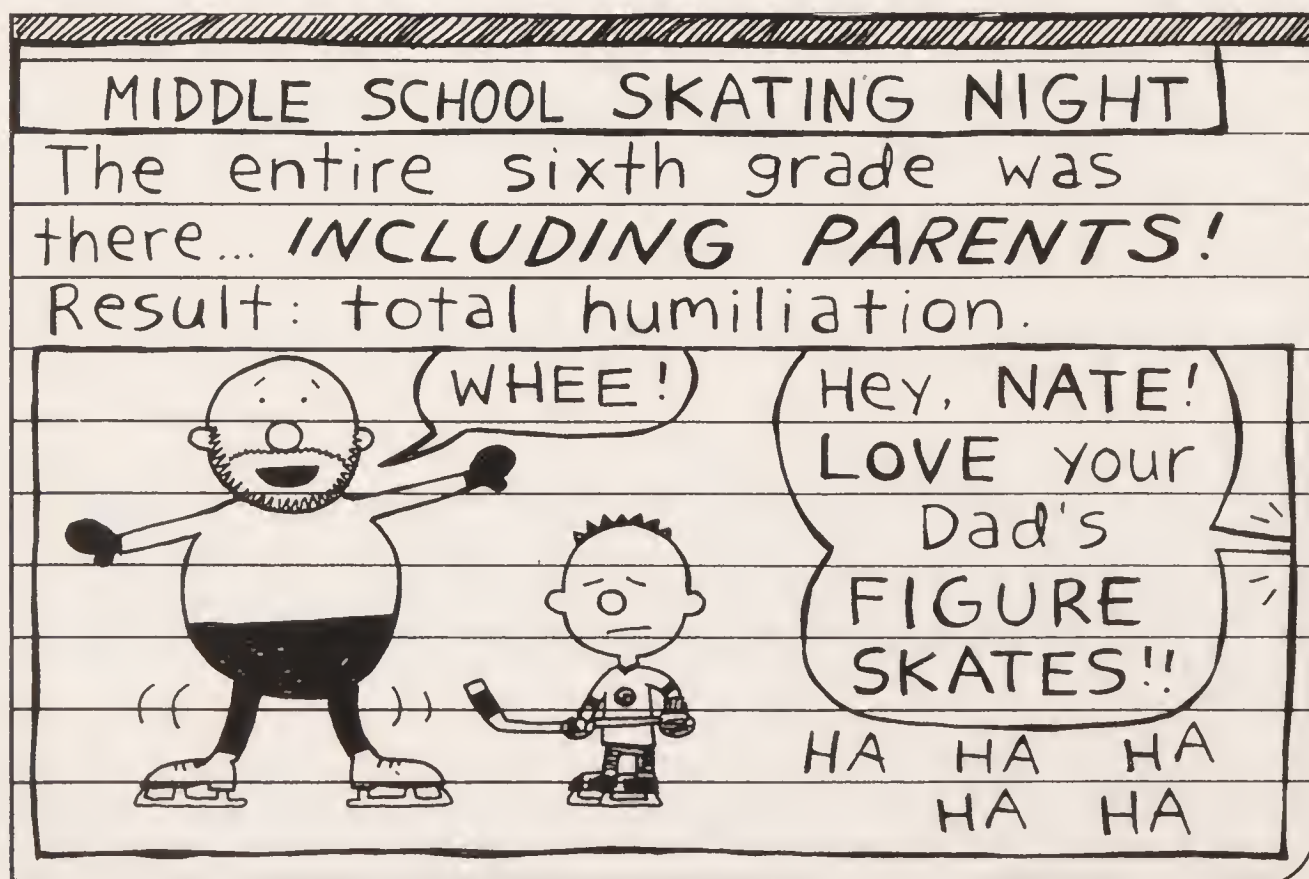 MIDDLE SCHOOL SKATING NIGHT
The entire sixth grade was
there... INCLUDING PARENTS!
Result: total humiliation.
WHEE!
Hey, NATE!
LOVE your
Dad's
FIGURE
SKATES!!
HA HA HA
HA HA